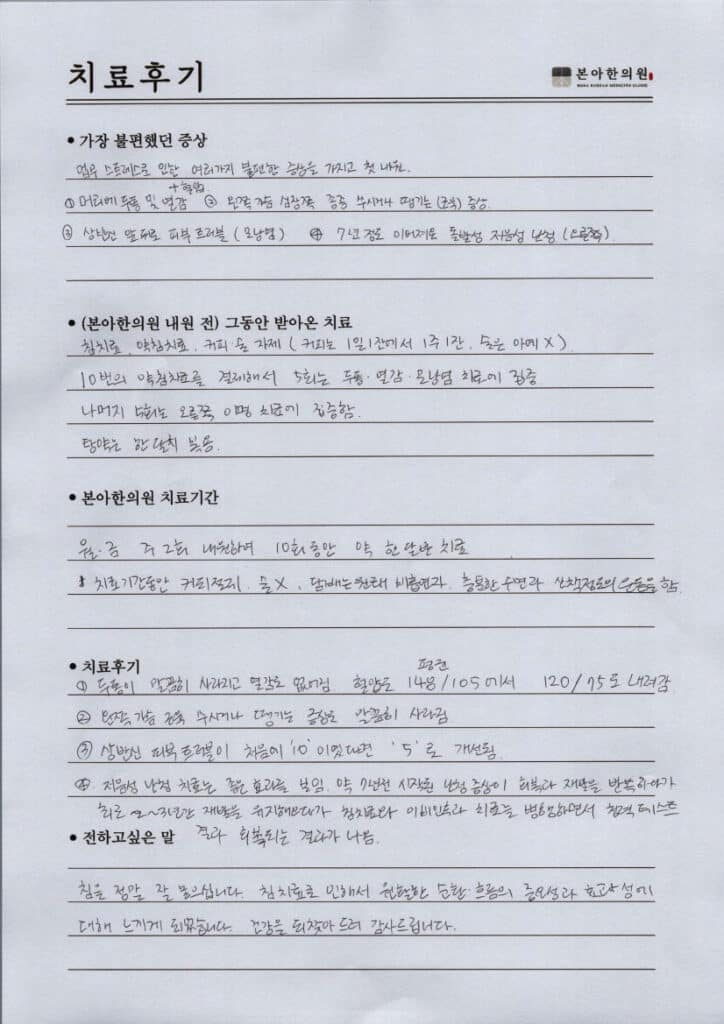 치료후기
본아한의원
BONA KOREAN MEDICINE CLINIC
• 가장 불편했던 증상
업무 스트레스로 인한 여러가지 불편한 증상을 가지고 첫 내원.
+ 혈압
① 머리에 두통 및 열감 ② 왼쪽 가슴 심장쪽 종종 쑤시거나 땡기는 (근육) 증상.
③ 상반신 앞뒤로 피부 트러블 (모낭염) ④ 7년정도 이어져온 돌발성 저음성 난청 (오른쪽).
• (본아한의원 내원 전) 그동안 받아온 치료
침치료, 약침치료, 커피·술 자제 (커피는 1일1잔에서 1주1잔, 술은 아예 X).
10번의 약침치료를 결제해서 5회는 두통·열감·모낭염 치료에 집중
나머지 5회는 오른쪽 이명 치료에 집중함.
탕약은 한달치 복용.
• 본아한의원 치료기간
월·금 주2회 내원하며 10회동안 약 한달반 치료
치료기간동안 커피절제, 술X, 담배는 원래 비흡연자, 충분한 수면과 산책정도의 운동을 함.
• 치료후기
평균
① 두통이 말끔히 사라지고 열감도 없어짐 혈압은 148/105에서 120/75로 내려감
② 왼쪽가슴 근육 쑤시거나 땡기는 증상도 말끔히 사라짐
③ 상반신 피부 트러블이 처음에 '10' 이었다면 '5'로 개선됨.
④ 저음성 난청 치료는 좋은 효과를 보임. 약 7년전 시작된 난청증상이 회복과 재발을 반복하다가
최근 2~3년간 재발을 유지해오다가 침치료와 이비인후과 치료를 병행하면서 청력 테스트
• 전하고싶은 말 결과 회복되는 결과가 나옴.
침을 정말 잘 놓으십니다. 침치료로 인해서 원활한 순환·흐름의 중요성과 효과성에
대해 느끼게 되었습니다. 건강을 되찾아 드려 감사드립니다.